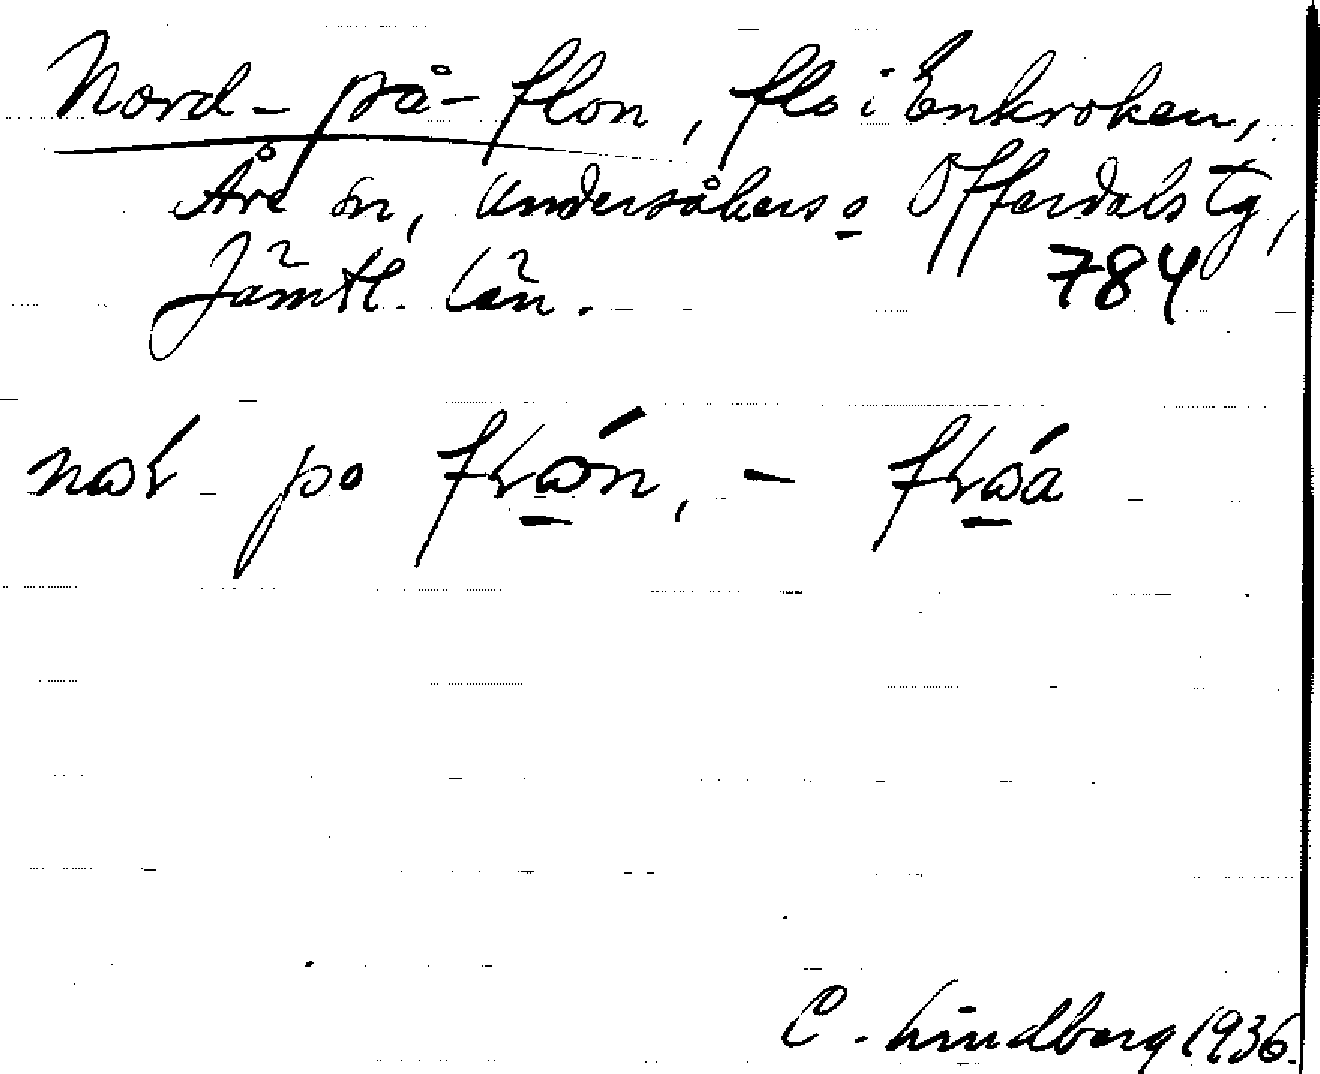 Nord-på-flon, flo i Enkroken,
Åre sn, Undersåkers o Offerdals tg,
Jämtl. län. 784
C. Lindberg 1936.